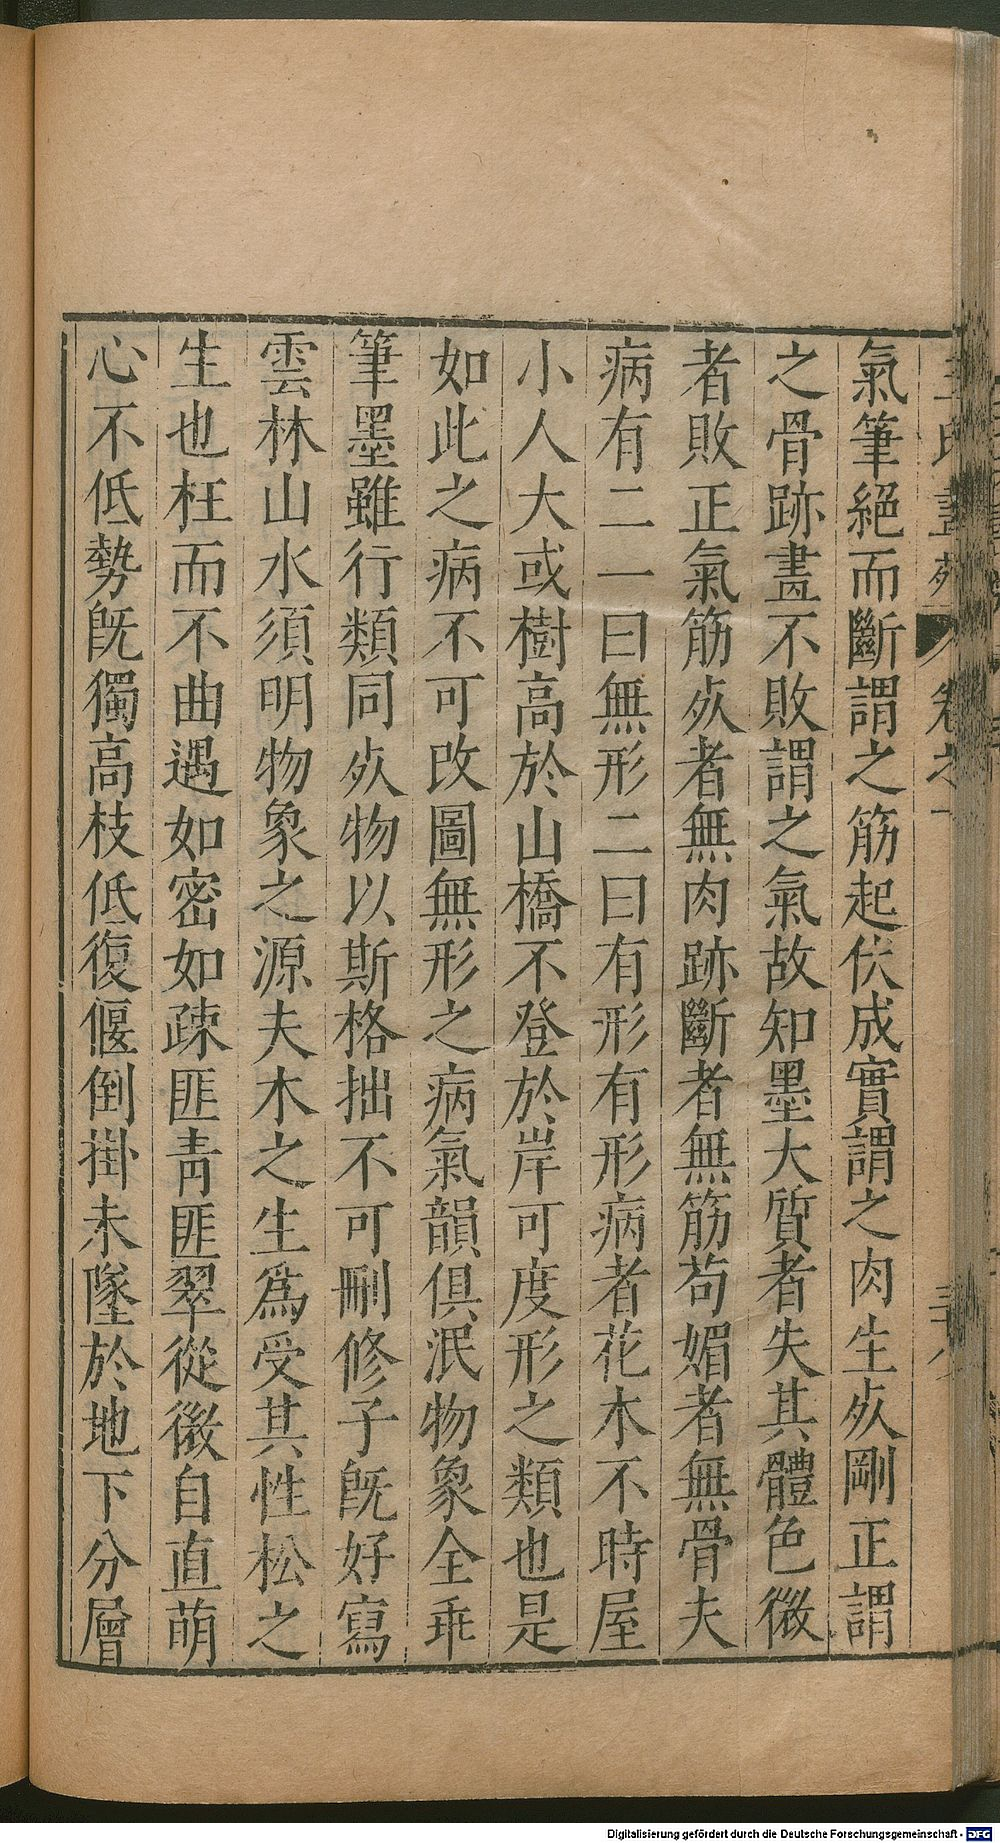 氣筆絕而斷謂之筋起伏成實謂之肉生死剛正謂
之骨跡畫不敗謂之氣故知墨大質者失其體色微
者敗正氣筋死者無肉跡斷者無筋苟媚者無骨夫
病有二一曰無形二曰有形有形病者花木不時屋
小人大或樹高於山橋不登於岸可度形之類也是
如此之病不可改圖無形之病氣韻俱泯物象全乖
筆墨雖行類同死物以斯格拙不可刪修子既好寫
雲林山水須明物象之源夫木之生爲受其性松之
生也枉而不曲遇如密如疎匪青匪翠從微自直萌
心不低勢既獨高枝低復偃倒掛未墜於地下分層
Digitalisierung gefördert durch die Deutsche Forschungsgemeinschaft - DFG